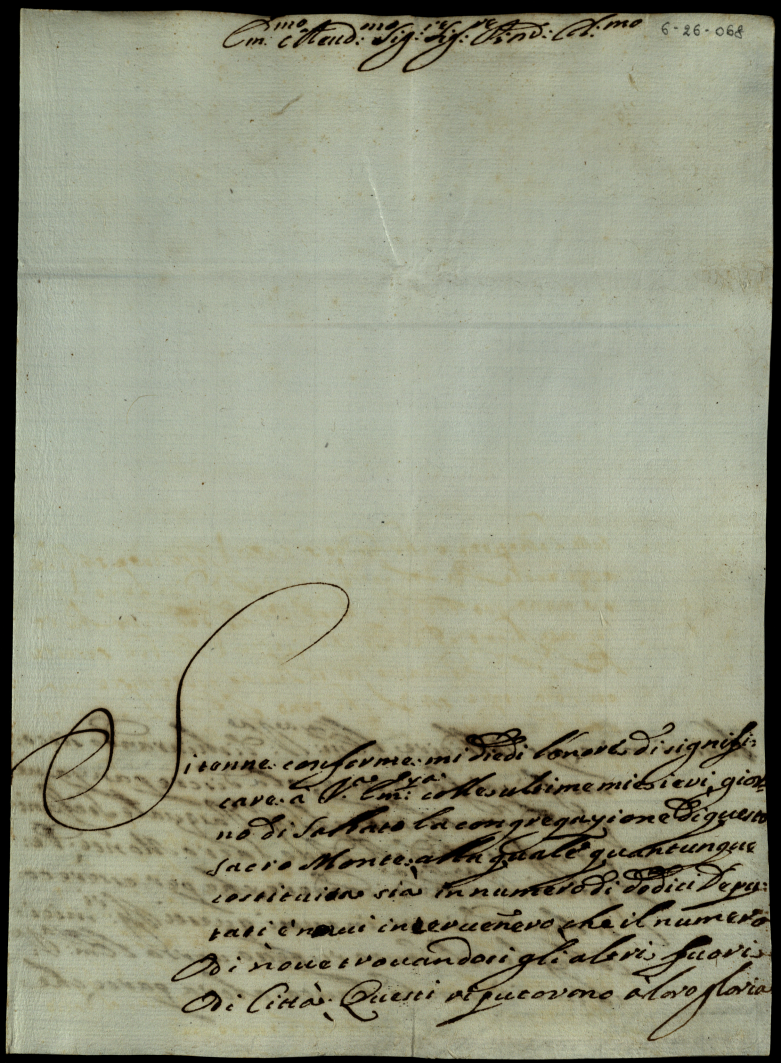 Em:mo e Reud:mo Sig:re Sig:re Pron: Col:mo
6-26-068
Si tenne conforme mi diedi l'onore di signifi:
care à V:ra Em:za colle ultime mie ieri, gior:
no di Sabbato la congregazione di questo
Sacro Monte alla quale quantunque
costituita sià in numero di dodici Depu:
tati è non ui interuenero che il numero
di noue trouandosi gli altri fuori
di Città. Questi riputorono à loro gloria